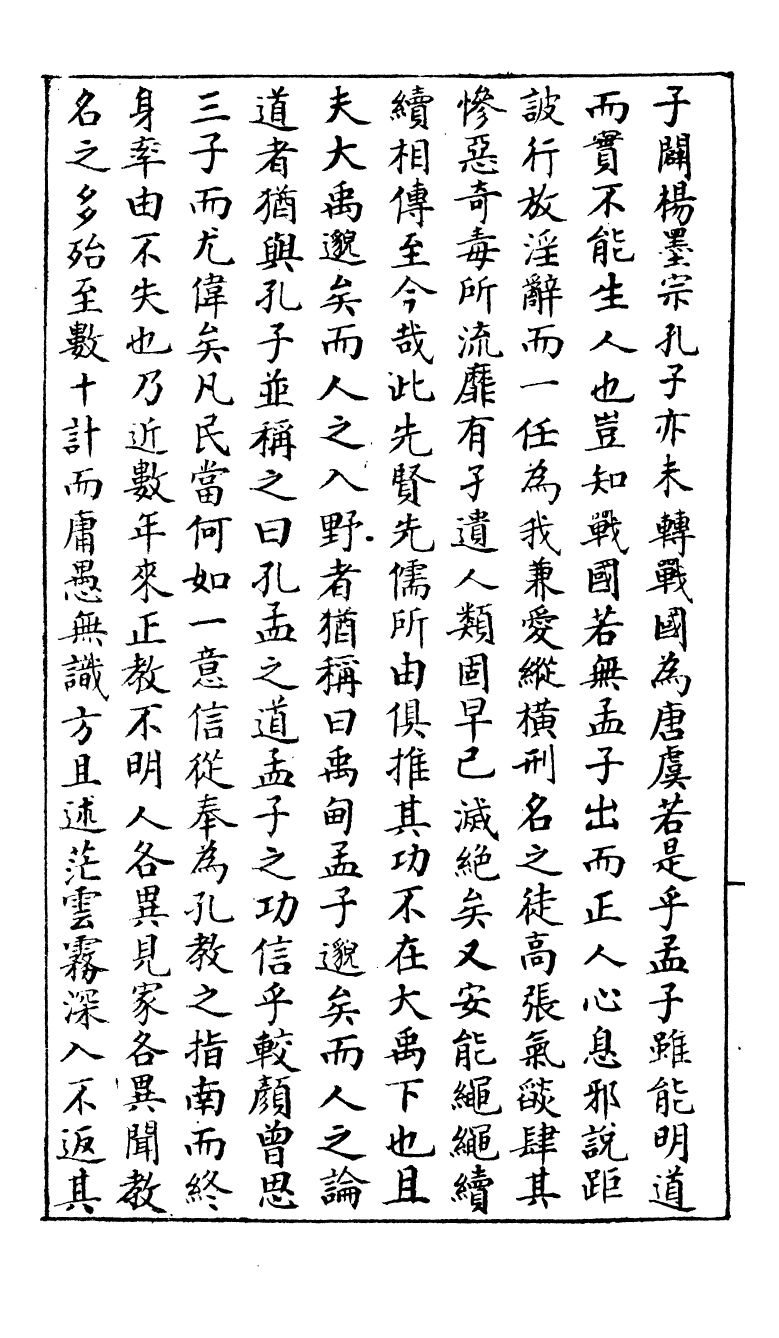 子闢楊墨宗孔子亦未轉戰國為唐虞若是乎孟子雖能明道
而實不能生人也豈知戰國若無孟子出而正人心息邪說距
詖行放淫辭而一任為我兼愛縱橫刑名之徒高張氣燄肆其
慘惡奇毒所流靡有孑遺人類固早已滅絕矣又安能繩繩續
續相傳至今哉此先賢先儒所由俱推其功不在大禹下也且
夫大禹邈矣而人之入野者猶稱曰禹甸孟子邈矣而人之論
道者猶與孔子並稱之曰孔孟之道孟子之功信乎較顏曾思
三子而尤偉矣凡民當何如一意信從奉為孔教之指南而終
身率由不失也乃近數年來正教不明人各異見家各異聞教
名之多殆至數十計而庸愚無識方且述茫雲霧深入不返其